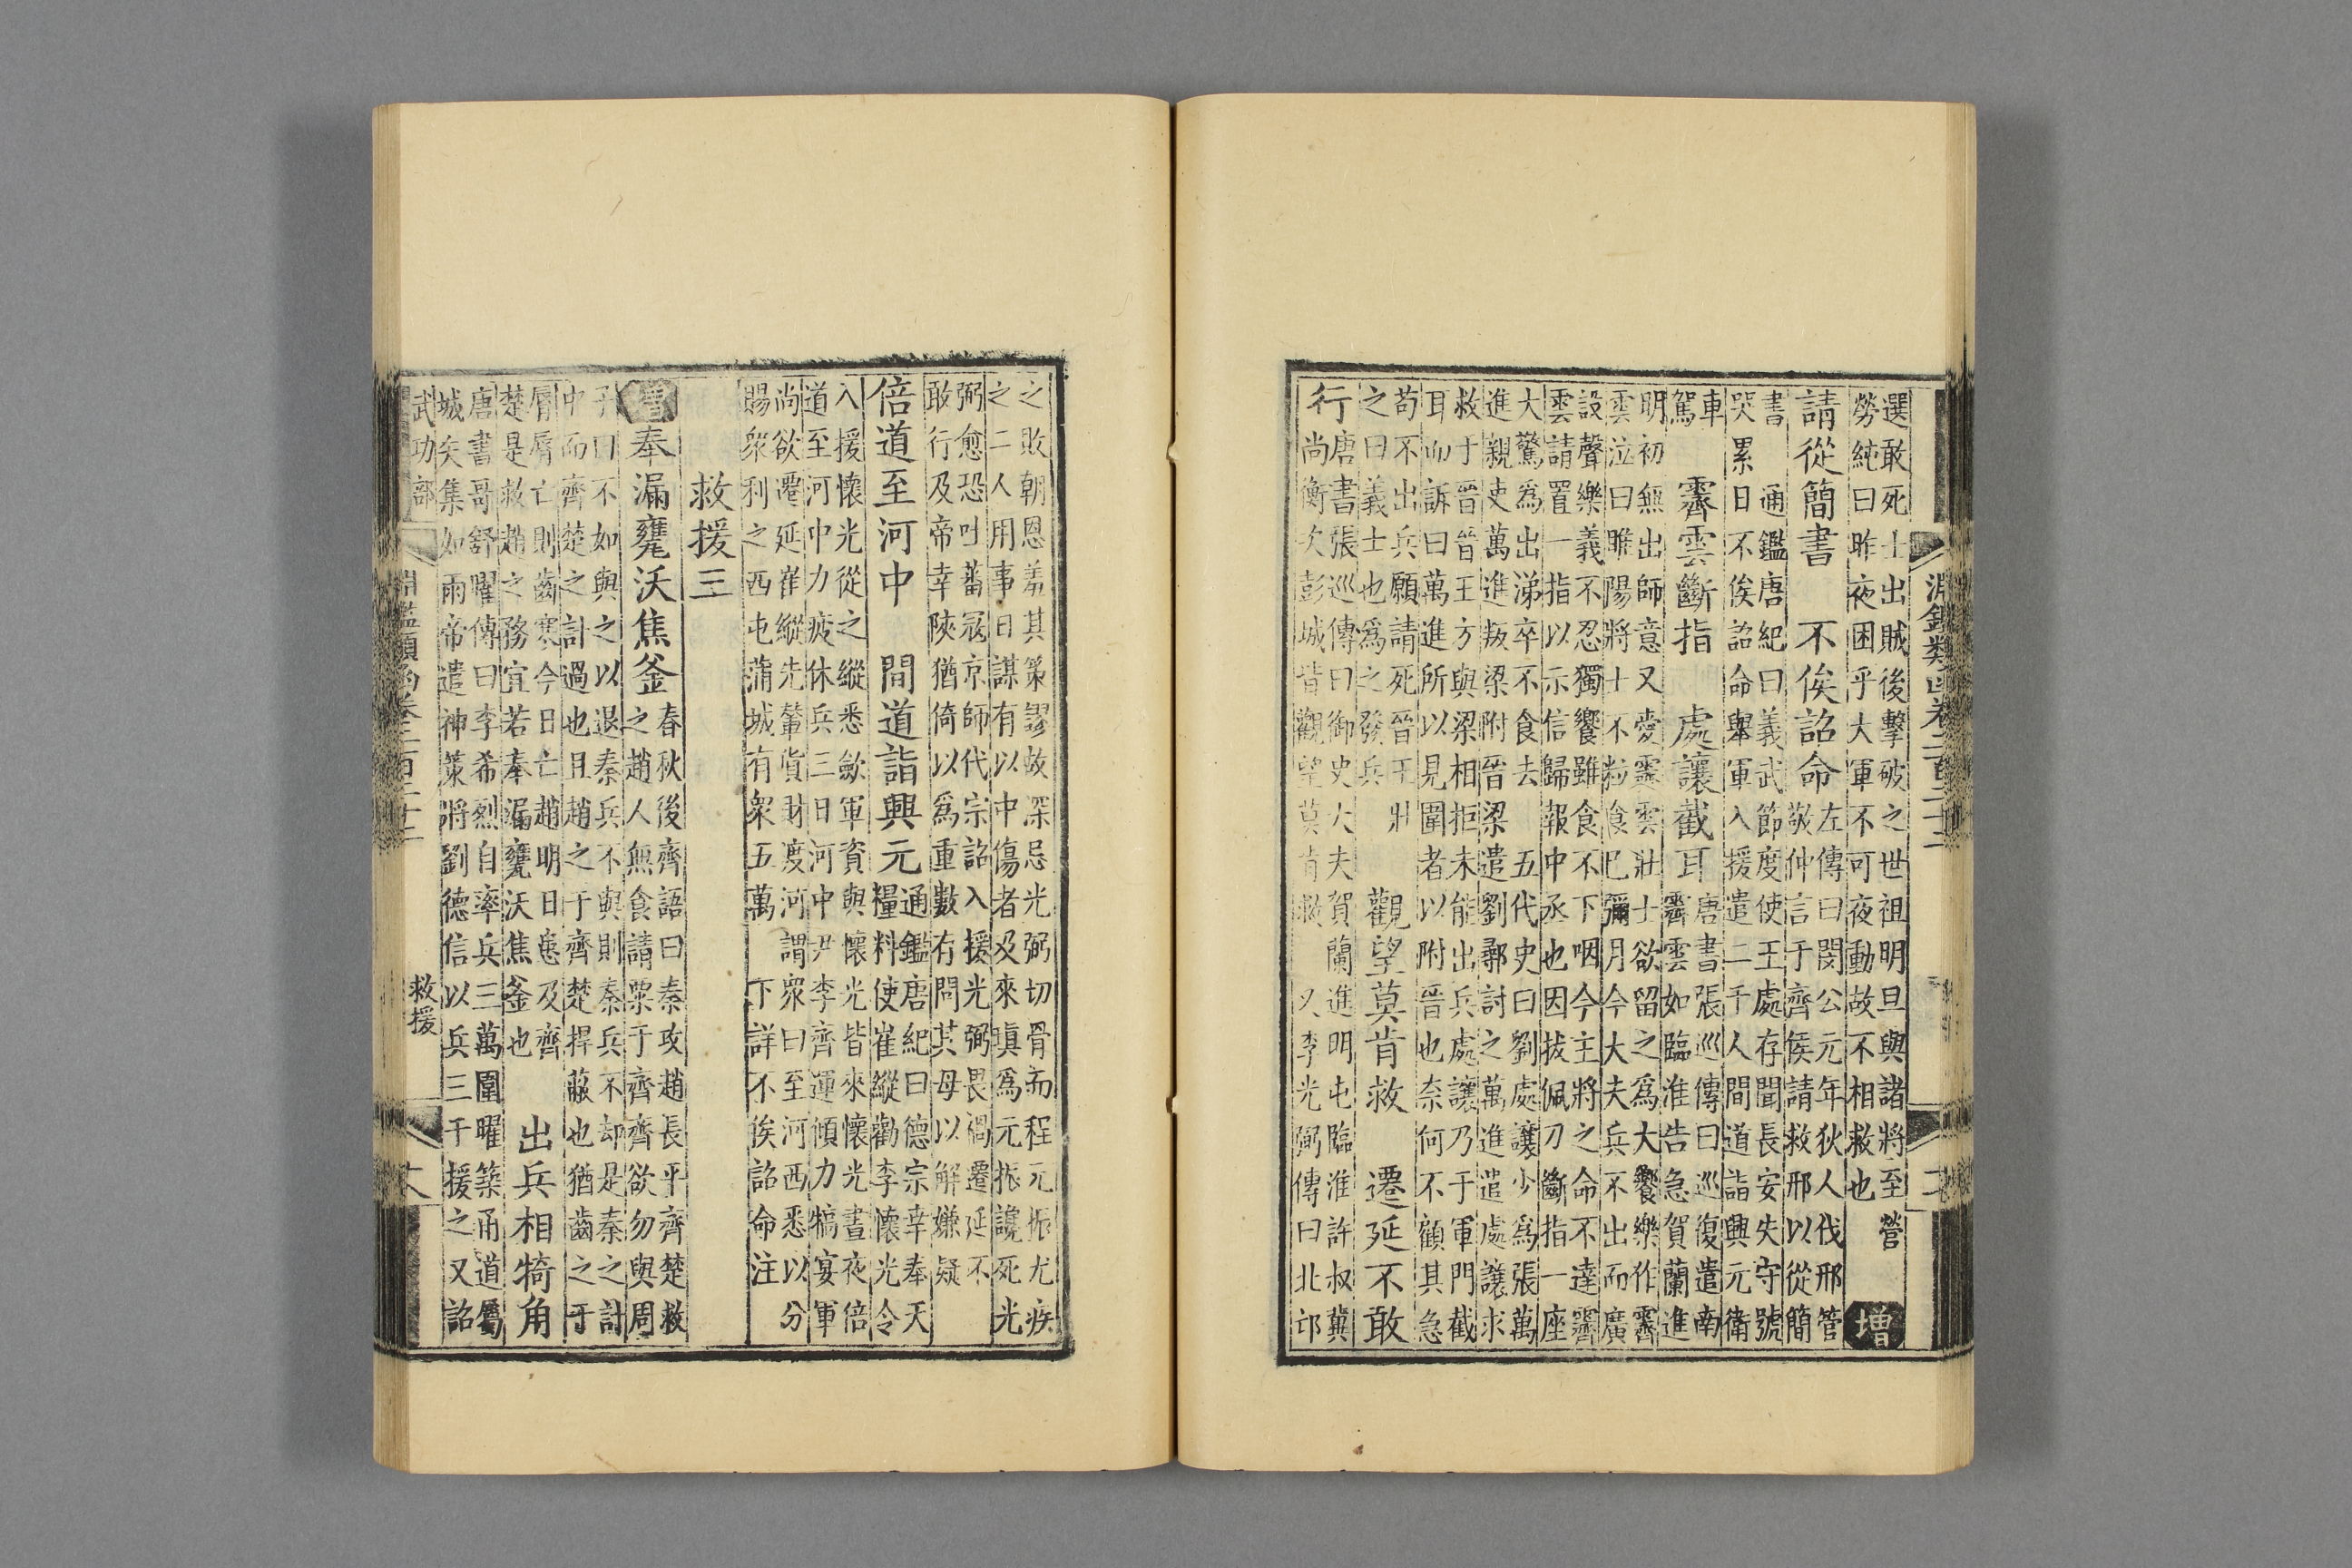 淵鑑類函卷二百二十二
選敢死士出賊後擊破之世祖明旦與諸將至營
勞純曰昨夜困乎大軍不可夜動故不相救也
增
請從簡書　不俟詔命
左傳曰閔公元年狄人伐邢管
敬仲言于齊侯請救邢以從簡
書　通鑑唐紀曰義武節度使王處存聞長安失守號
哭累日不俟詔命舉軍入援遣二千人間道詣興元衛
車
駕
霽雲斷指　處讓截耳
唐書張巡傳曰巡復遣南
霽雲如臨淮告急賀蘭進
明初無出師意又愛霽雲壯士欲留之為大饗樂作霽
雲泣曰睢陽將士不粒食已彌月今大夫兵不出而廣
設聲樂義不忍獨饗雖食不下咽今主將之命不達霽
雲請置一指以示信歸報中丞也因拔佩刀斷指一座
大驚為出涕卒不食去　五代史曰劉處讓少為張萬
進親吏萬進叛梁附晉梁遣劉鄩討之萬進遣處讓求
救于晉晉王方與梁相拒未能出兵處讓乃于軍門截
耳而訴曰萬進所以見圍者以附晉也奈何不顧其急
苟不出兵願請死晉王壯
之曰義士也為之發兵
觀望莫肯救　遷延不敢
行
唐書張巡傳曰御史大夫賀蘭進明屯臨淮許叔冀
尚衡次彭城皆觀望莫肯救　又李光弼傳曰北邙
之敗朝恩羞其策謬故深忌光弼切骨而程元振尤疾
之二人用事日謀有以中傷者及來瑱為元振讒死光
弼愈恐吐蕃寇京師代宗詔入援光弼畏禍遷延不
敢行及帝幸陝猶倚以為重數有問其母以解嫌疑
倍道至河中　間道詣興元
通鑑唐紀曰德宗幸奉天
糧料使崔縱勸李懷光令
入援懷光從之縱悉歛軍資與懷光皆來懷光晝夜倍
道至河中力疲休兵三日河中尹李齊運傾力犒宴軍
尚欲遷延崔縱先輦貨財渡河謂眾曰至河西悉以分
賜衆利之西屯蒲城有衆五萬　下詳不俟詔命注
救援三
增
奉漏甕沃焦釜
春秋後齊語曰秦攻趙長平齊楚救
之趙人無食請粟于齊齊欲勿與周
子曰不如與之以退秦兵不與則秦兵不却是秦之計
中而齊楚之計過也且趙之于齊楚捍蔽也猶齒之于
脣脣亡則齒寒今日亡趙明日患及齊
楚是救趙之務宜若奉漏甕沃焦釜也
出兵相犄角
唐書哥舒曜傳曰李希烈自率兵三萬圍曜築甬道屬
城矢集如雨帝遣神策將劉德信以兵三千援之又詔
武功部
救援